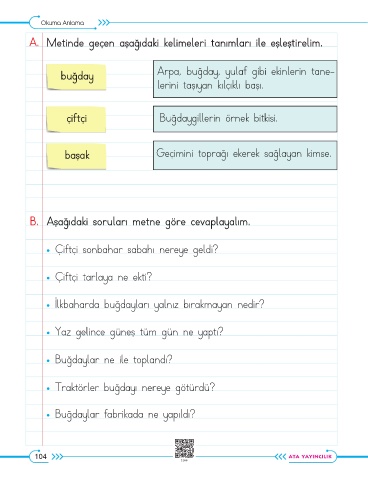 Okuma Anlama
A. Metinde geçen aşağıdaki kelimeleri tanımları ile eşleştirelim.
buğday
Arpa, buğday, yulaf gibi ekinlerin tane-
lerini taşıyan kılçıklı başı.
çiftçi
Buğdaygillerin örnek bitkisi.
başak
Geçimini toprağı ekerek sağlayan kimse.
B. Aşağıdaki soruları metne göre cevaplayalım.
• Çiftçi sonbahar sabahı nereye geldi?
• Çiftçi tarlaya ne ekti?
• İlkbaharda buğdayları yalnız bırakmayan nedir?
• Yaz gelince güneş tüm gün ne yaptı?
• Buğdaylar ne ile toplandı?
• Traktörler buğdayı nereye götürdü?
• Buğdaylar fabrikada ne yapıldı?
104
ATA YAYINCILIK